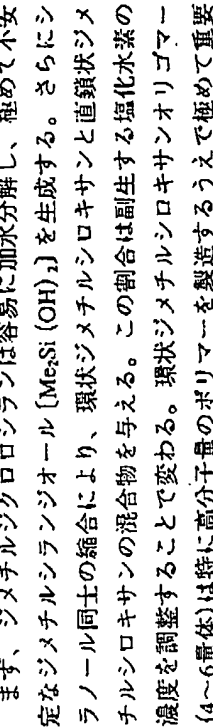 まず、ジメチルジクロロシランは容易に加水分解し、極めて不安
定なジメチルシランジオール〔Me₂Si (OH)₂〕を生成する。さらにシ
ラノール同士の縮合により、環状ジメチルシロキサンと直鎖状ジメ
チルシロキサンの混合物を与える。この割合は副生する塩化水素の
濃度を調整することで変わる。環状ジメチルシロキサンオリゴマー
(4〜6量体)は特に高分子量のポリマーを製造するうえで極めて重要